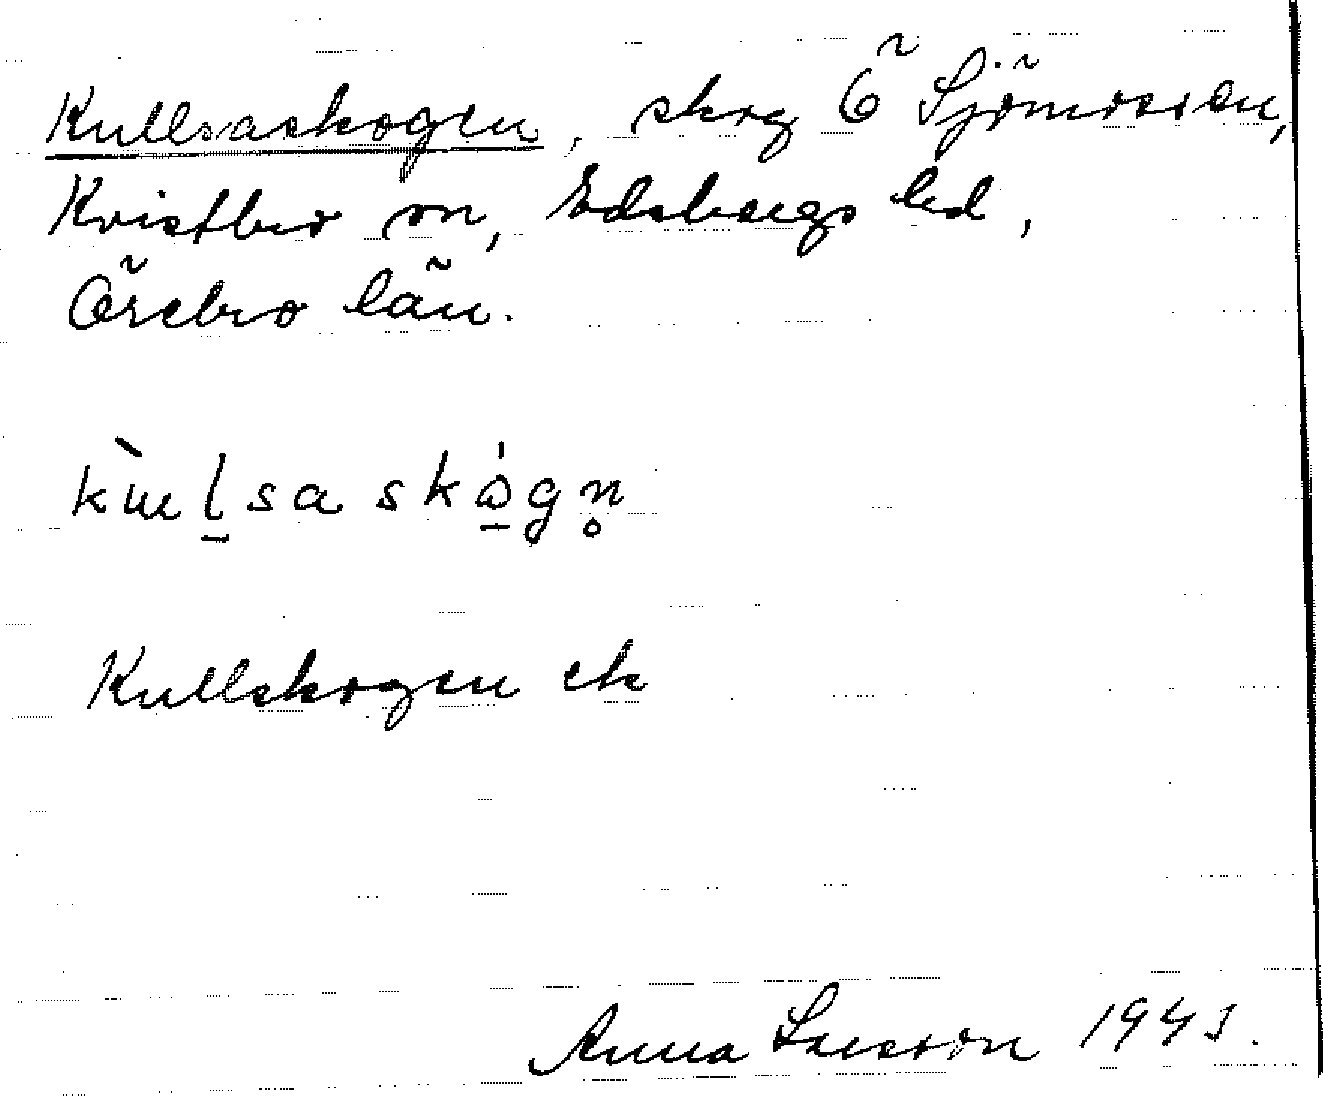 Kullsaskogen, skog Ö Sjömossen,
Kvistbro sn, Edsbergs hd,
Örebro län.
kɯ̀l̠saskɷ̠́gn̥
Kullskogen ek
Anna Larsson 194